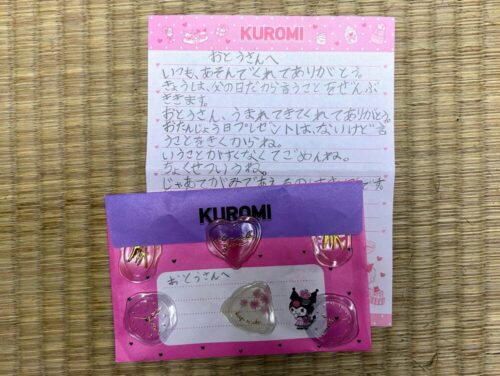 KUROMI
おとうさんへ
いつも、あそんでくれてありがとう。
きょうは、父の日だから言うことをぜんぶ
ききます。
おとうさん、うまれてきてくれてありがとう。
おたんじょう日プレゼントは、ないけど言
うことをきくからね。
いうことがすくなくてごめんね。
ちょくせついうね。
KUROMI
おとうさんへ